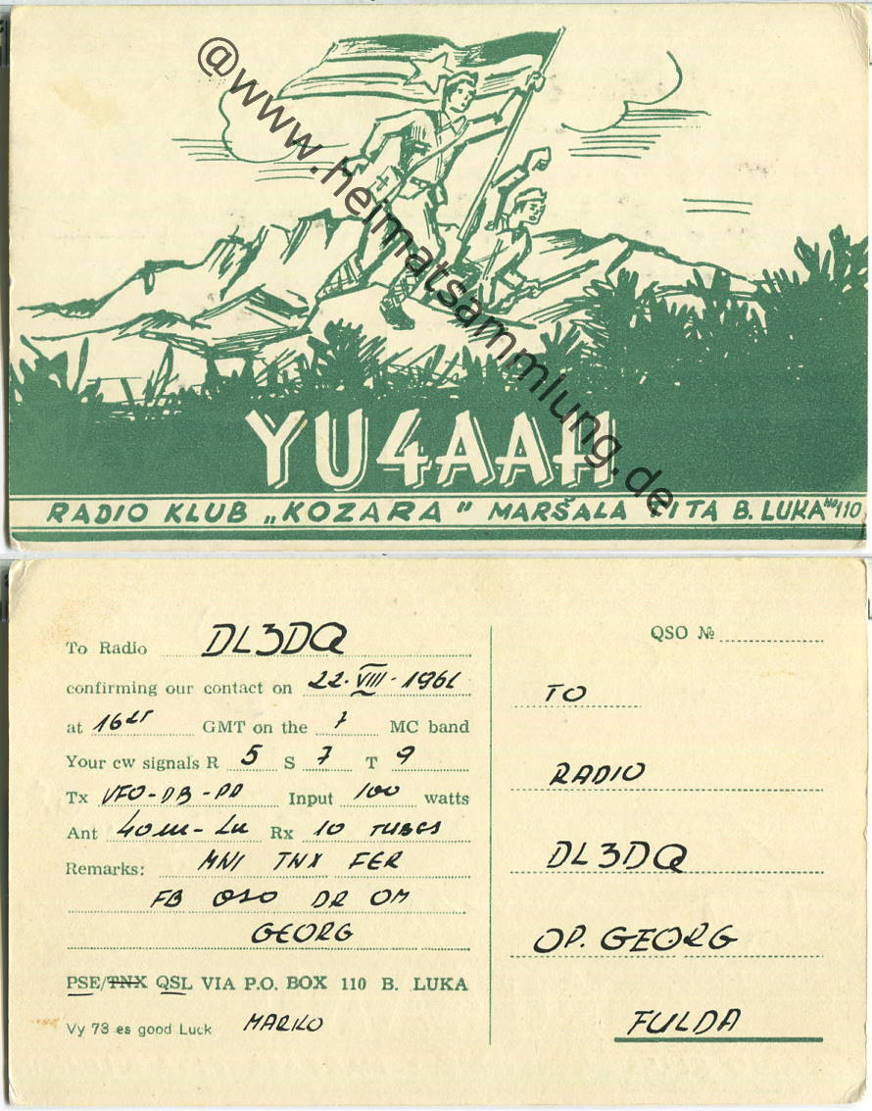 @www.heimatsammlung.de
YU4AAH
RADIO KLUB „KOZARA" MARŠALA TITA B. LUKA No 110
To Radio DL3DQ
confirming our contact on 22. VIII - 196
at 16 GMT on the 7 MC band
Your cw signals R 5 S 7 T 9
Tx VFO-DB-PD Input 100 watts
Ant 40m - Rx 10 TUBES
Remarks: MNI TNX FER
FB QSO DR OM
GEORG
PSE/TNX QSL VIA P.O. BOX 110 B. LUKA
Vy 73 es good Luck
QSO №
TO
RADIO
DL3DQ
OP. GEORG
FULDA